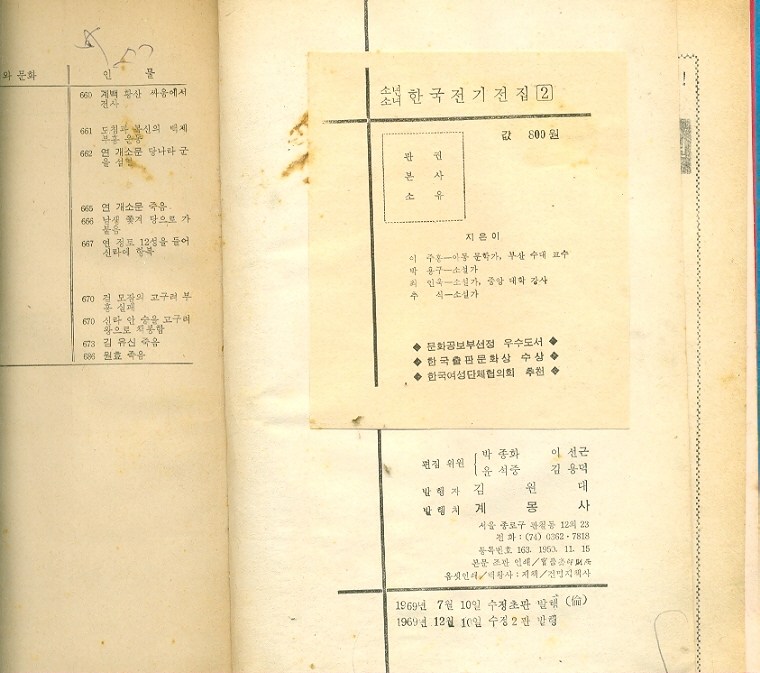 와 문화
인 물
660 계백 황산 싸움에서
전사
661 도침과 복신의 백제
부흥 운동
662 연 개소문 당나라 군
을 섬멸
665 연 개소문 죽음
666 남생 쫓겨 당으로 가
붙음
667 연 정토 12성을 들어
신라에 항복
670 검 모잠의 고구려 부
흥 실패
670 신라 안 승을 고구려
왕으로 책봉함
673 김 유신 죽음
686 원효 죽음
소년 소녀 한국전기전집 2
값 800원
판 권
본 사
소 유
지은이
이 주홍—아동 문학가, 부산 수대 교수
박 용구—소설가
최 인욱—소설가, 중앙 대학 강사
추 식—소설가
◆ 문화공보부선정 우수도서 ◆
◆ 한국출판문화상 수상 ◆
◆ 한국여성단체협의회 추천 ◆
편집 위원 박 종화 이 선근
윤 석중 김 용덕
발행자 김 원 대
발행처 계 몽 사
서울 종로구 관철동 12의 23
전화 : (74) 0362·7818
등록번호 163. 1950. 11. 15
본문 조판 인쇄/
옵셋인쇄/ : 제책/건명지책사
1969년 7월 10일 수정초판 발행 (倫)
1969년 12월 10일 수정 2판 발행
!